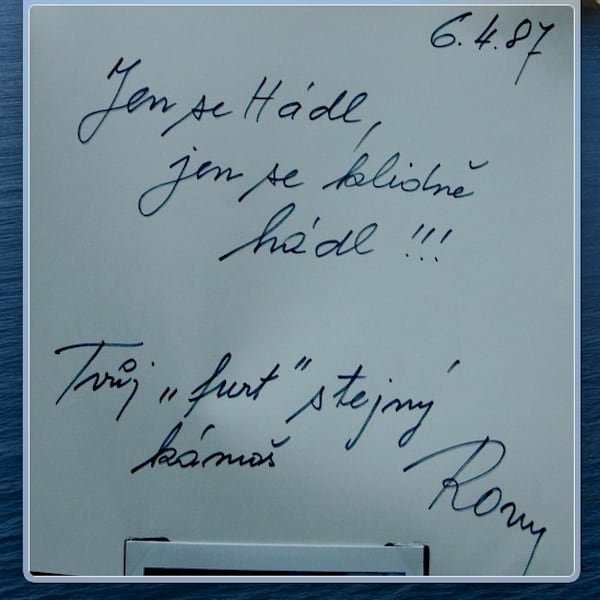 6.4.87
Jen se Hádl,
jen se klidně
hádl !!!
Tvůj „furt" stejný
kámoš
Rony